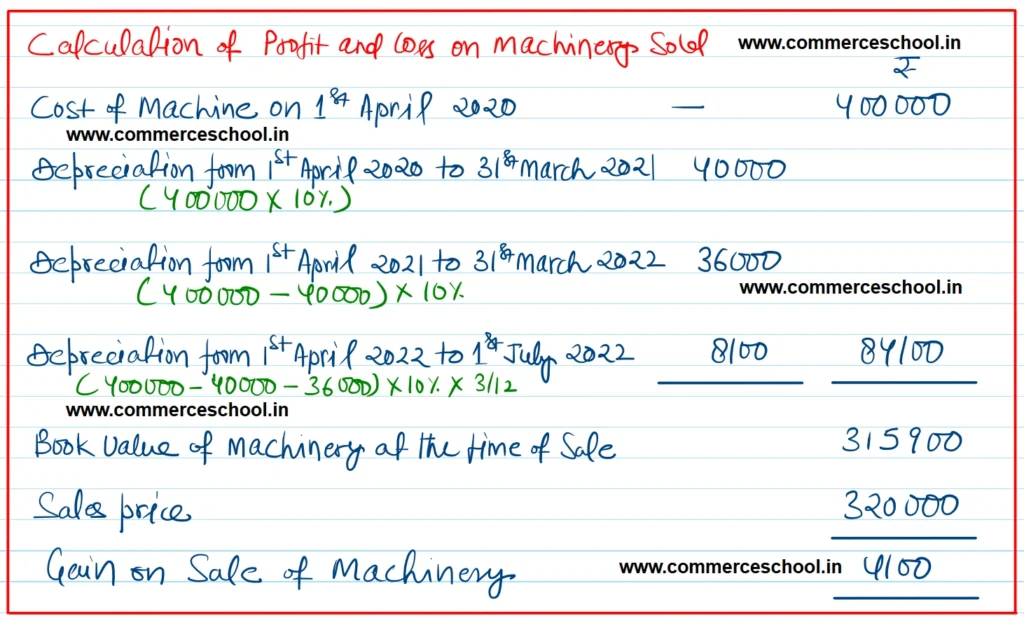 Calculation of Profit and loss on machinery Sold www.commerceschool.in
₹
Cost of Machine on 1st April 2020 — 400000
www.commerceschool.in
Depreciation from 1st April 2020 to 31st March 2021 40000
(400000 X 10%)
Depreciation from 1st April 2021 to 31st March 2022 36000
(400000 - 40000) X 10%
www.commerceschool.in
Depreciation from 1st April 2022 to 1st July 2022 8100 84100
(400000 - 40000 - 36000) X 10% X 3/12
www.commerceschool.in
Book Value of Machinery at the time of Sale 315900
Sales price 320000
Gain on Sale of Machinery www.commerceschool.in 4100